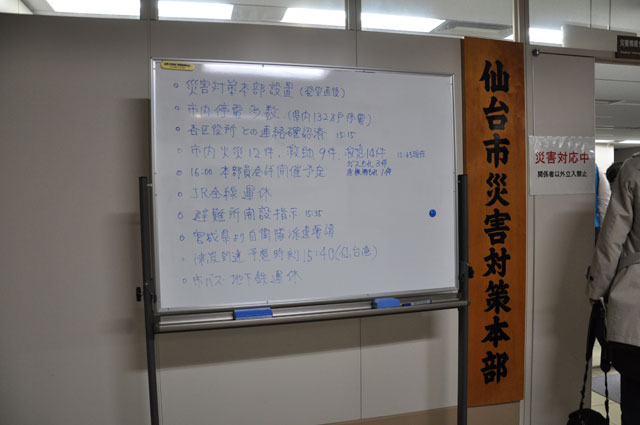 ○ 災害対策本部設置 (発災直後)
○ 市内 停電 多数 (県内
○ 各区役所 との連絡確認済 15:15
○ 市内火災12件, 救助9件,
ガスもれ 3件
○ 16:00 本部員会議開催予定
○ JR全線運休
○ 避難所開設指示
○ 宮城県より自衛隊派遣要請
○ 津波到達予想時刻 15:40(仙台港)
○ 市バス・地下鉄運休
仙台市災害対策本部
災害対応中
関係者以外立入禁止